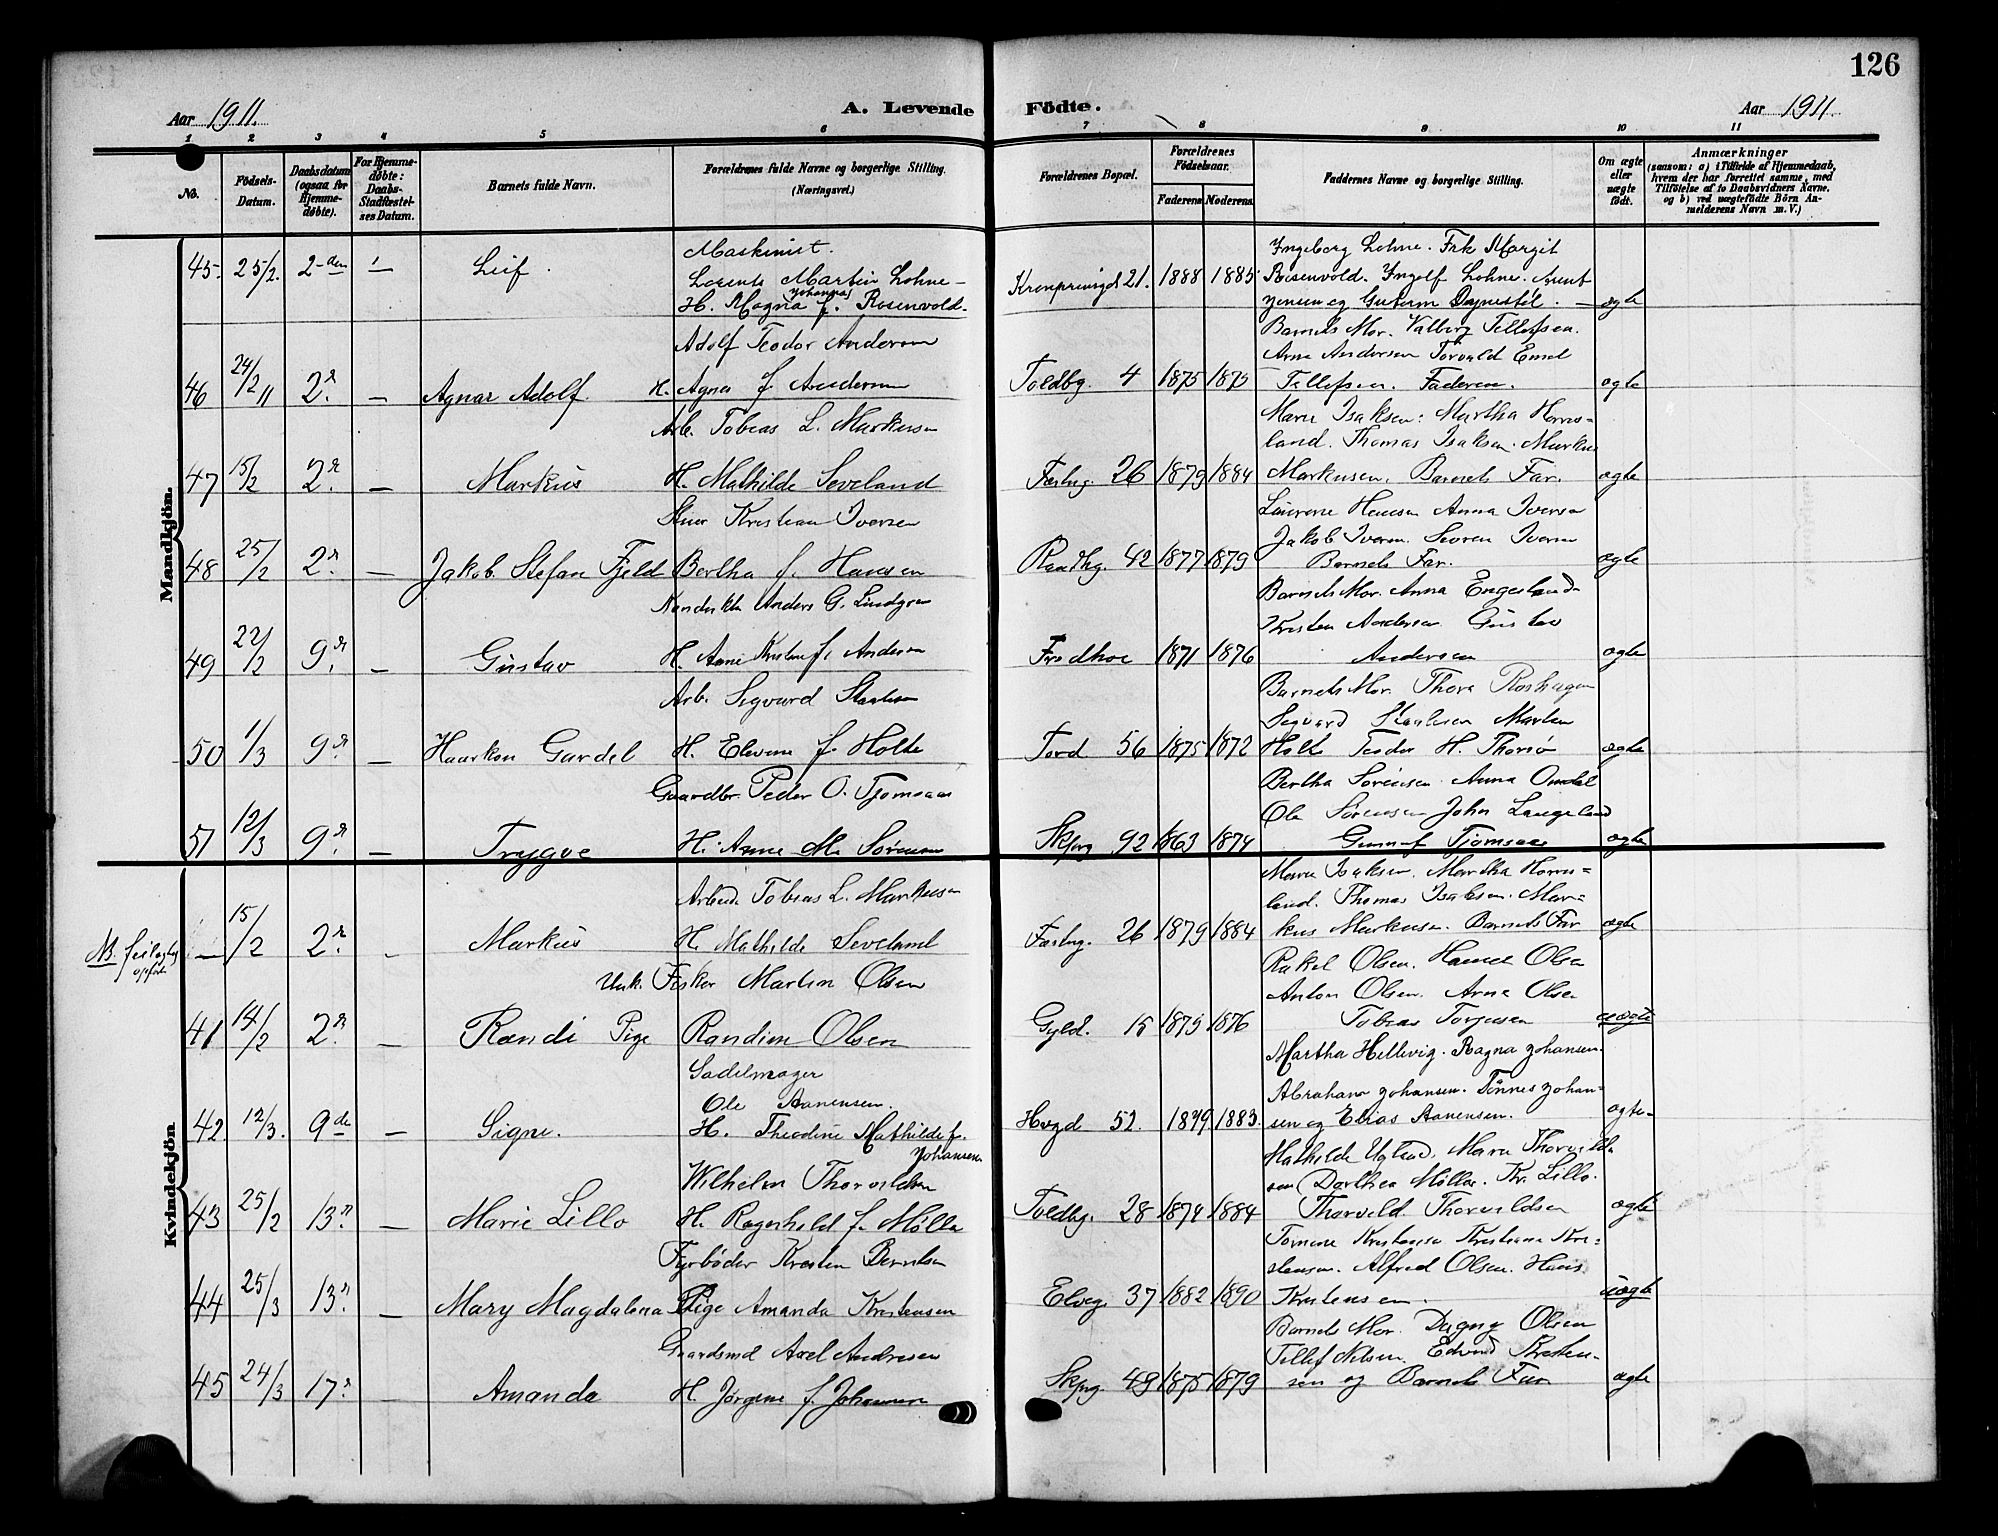 126
Aar 1911.
A. Levende Födte.
Aar 1911.
1 2 3 4 5 6 7 8 9 10 11
No.
Födsels-Datum.
Daabsdatum (ogsaa for Hjemme-döbte).
For Hjemme-döbte: Daabs-Stadfæstel-ses Datum.
Barnets fulde Navn.
Forældrenes fulde Navne og borgerlige Stilling. (Næringsvei.)
Forældrenes Bopæl.
Forældrenes Födselsaar.
Faderens Moderens
Faddernes Navne og borgerlige Stilling.
Om ægte eller uægte födt.
Anmærkninger
(saasom: a) i Tilfælde af Hjemmedaab,
hvem der har forrettet samme, med
Tilföielse af to Daabsvidners Navne.
og b) ved uægtefödte Börn An-
melderens Navn m. V.)
Mandkjön.
45. 25/2. 2-den Leif.
Maskinist.
Martin Lohne
H. Magna Johanna f. Rosenvold
21. 1888 1885
Ingeborg Lohne. Frk Margit
Rosenvold. Ingolf Lohne.
ægte
46 24/2 11 2. — Agnar Adolf.
Adolf Teodor Andersen
H. Agna f. Andersen
Toldbg. 4 1875 1875
Barnets Mor. Valborg Tellefsen.
Arne Andersen Torvald Emil
Tellefsen. Faderen.
ægte
47 15/2 2. — Markus
Arb. Tobias L. Markusen
H. Mathilde Seveland
26 1879 1884
Marie Isaksen: Martha Horris=
land. Thomas Isaksen. Markus
Markusen. Barnets Far.
ægte
48 25/2 2. — Jakob Stefan Fjeld
Kristian Iversen
Bertha f. Hansen
42 1877 1879
Hansen Anna Iversen
Jakob Iversen Soren Iversen
Barnets Far.
ægte
49 22/2 9. — Gustav
Anders G. Lindgren
H. Anne Kristine f. Andersen
1871 1876
Barnets Mor. Anna Engesland
Kristen Andersen Gustav
Andersen
ægte
50 1/3 9. — Haarkon Gardel
Arb. Sigvard
H. Elevine f. Holte
56 1875 1872
Barnets Mor. Thora
Sigvard Martin
Holte Teodor H.
ægte
51 12/3 9. — Trygve
Gaardbr. Peder O. Tjomsaas
H. Anne M. Sørensen
Skprg 92 1863 1874
Bertha Sørensen Anna Omdal
Ole Sørensen John Langeland
Tjomsaas
ægte
Kvindekjön
NB. feilagtig opført
— 15/2 2. Markus
Arbeid. Tobias L. Markusen
H. Mathilde Seveland
26 1879 1884
Marie Isaksen. Martha Horris=
land. Thomas Isaksen. Mar=
kus Markusen. Barnets Far
ægte
41 14/2 2. — Randi
Unk. Fisker Martin Olsen
Pige Randine Olsen
Gyld. 15 1875 1876
Rakel Olsen. Hanna Olsen
Anton Olsen. Arne Olsen
Tobias Torjusen
uægte
42. 12/3. 9de — Signe.
Sadelmager
Ole Aanensen.
H. Theodine Mathilde f. Johansen
52. 1879 1883.
Martha Hellevig. Ragna Johansen.
Abraham Johansen. Tönnes Johan=
sen og Elias Aanensen.
ægte
43 25/2 13. — Marie Lillo
Wilhelm Thorvildsen
H. Ragnhild f. Møller
Toldbg. 28 1874 1884
Mathilde Ugland. Marie Thorvild-
sen Dorthea Möller. Kr. Lillo.
Thorvald Thorvildsen
ægte
44 25/3 13. — Mary Magdalena
Fyrbøder Kristen Berntsen
Pige Amanda Kristensen
Elveg. 37 1882 1890
Kristensen Kristiane Kri=
stensen. Alfred Olsen. Hans
Kristensen.
uægte
45 24/3 17. — Amanda
Gaardsmd Axel Andresen
H. Jørgine f. Johannesen
Skprg. 49 1875 1879
Barnets Mor. Dagny Olsen
Tellef Nilsen. Edvard Kristen-
sen og Barnets Far
ægte